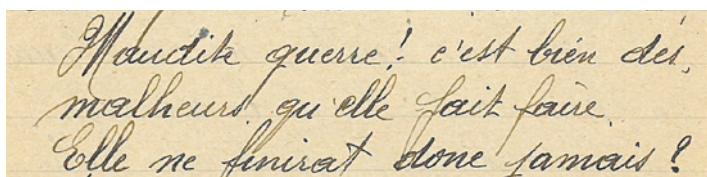 Maudite guerre! c'est bien des
malheurs qu'elle fait faire
Elle ne finirat donc jamais?